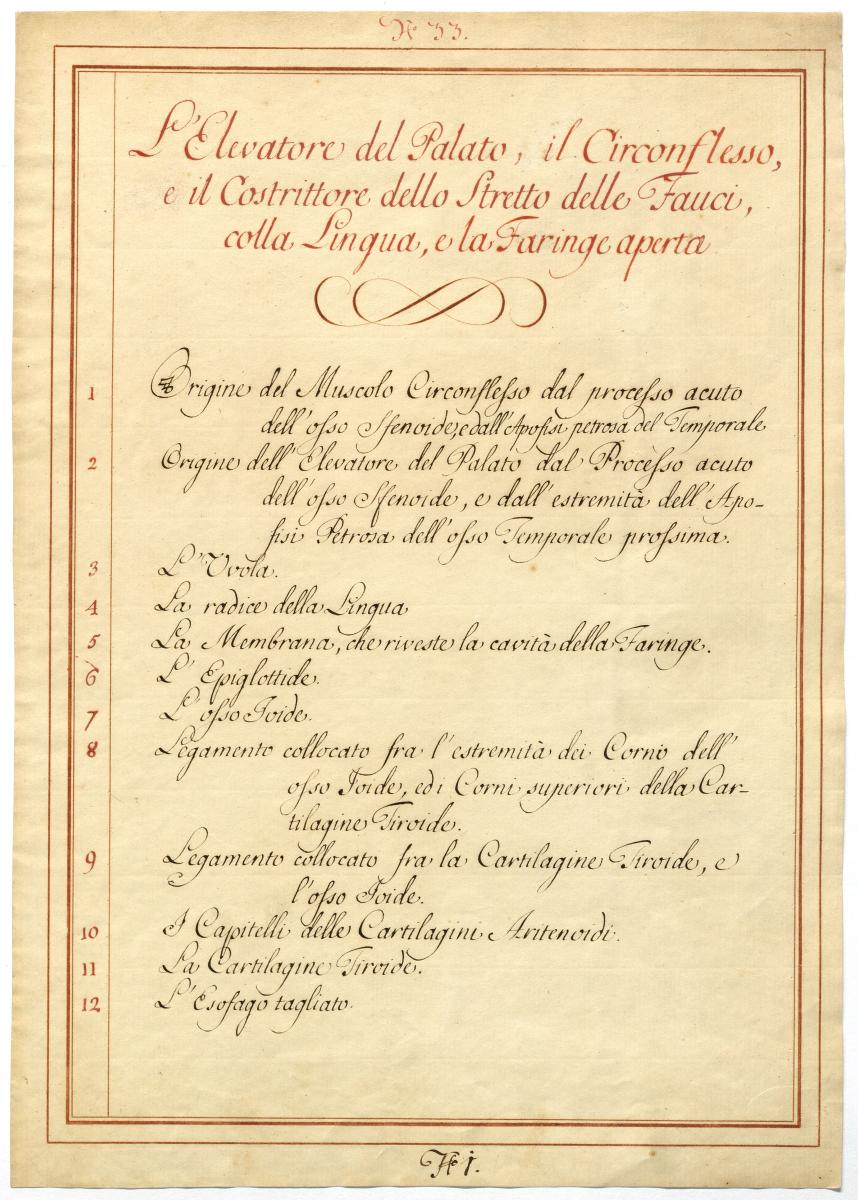 N° 33.
L'Elevatore del Palato, il Circonflesso,
e il Costrittore dello Stretto delle Fauci,
colla Lingua, e la Faringe aperta
1 Origine del Muscolo Circonflesso dal processo acuto
dell'osso Sfenoide, e dall'Apofisi petrosa del Temporale
2 Origine dell'Elevatore del Palato dal Processo acuto
dell'osso Sfenoide, e dall'estremità dell'Apo-
fisi Petrosa dell'osso Temporale prossima.
3 L'Uvola.
4 La radice della Lingua
5 La Membrana, che riveste la cavità della Faringe.
6 L'Epiglottide.
7 L'osso Joide.
8 Legamento collocato fra l'estremità dei Corni dell'
osso Joide, ed i Corni superiori della Car-
tilagine Tiroide.
9 Legamento collocato fra la Cartilagine Tiroide, e
l'osso Joide.
10 I Capitelli delle Cartilagini Aritenoidi.
11 La Cartilagine Tiroide.
12 L'Esofago tagliato.